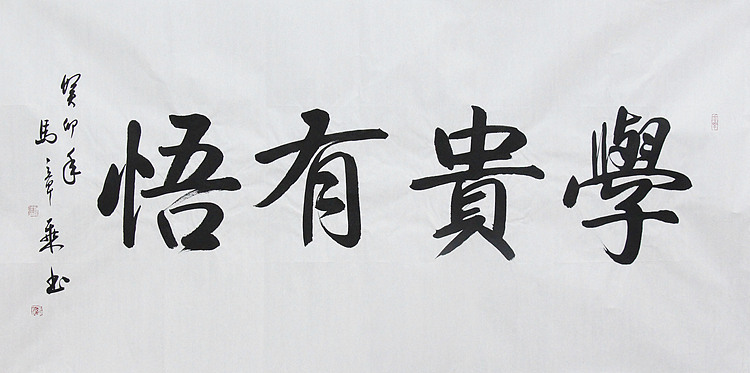 學貴有悟
癸卯年
馬章乘书